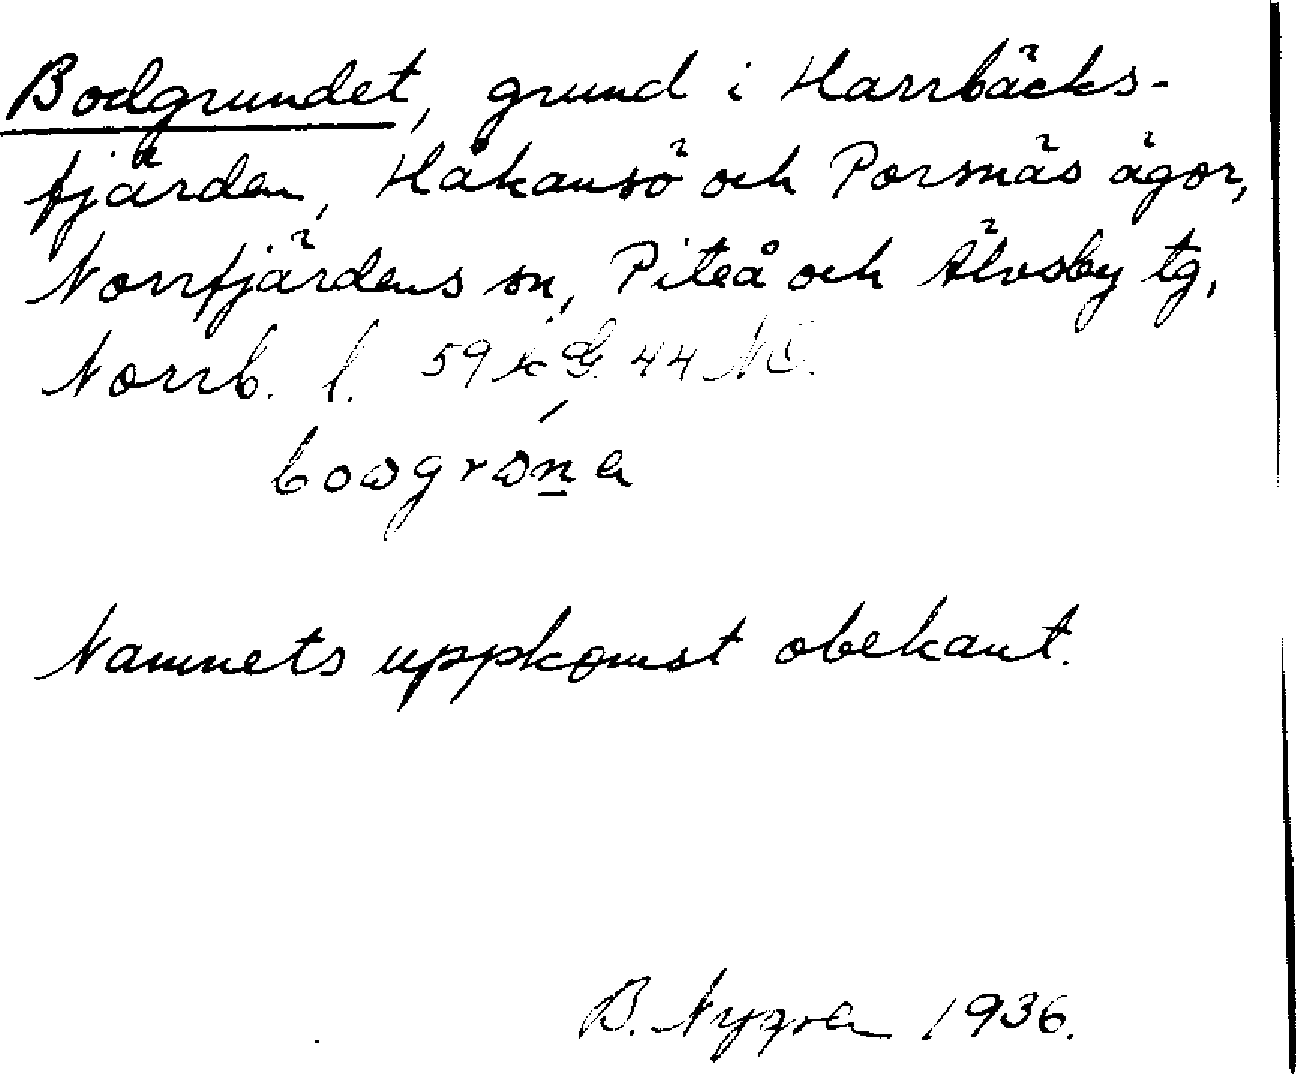 Bodgrundet, grund i Harrbäcks-
fjärden, Håkansö och Porsnäs ägor,
Norrfjärdens sn, Piteå och Älvsby tg,
Norrb. l. 59 k G. 44 NO.
Namnets uppkomst obekant.
B. Nygren 1936.